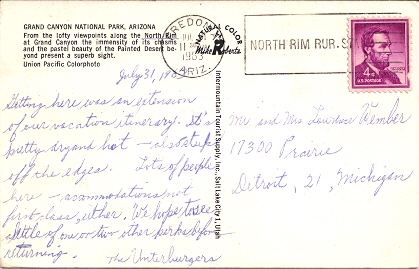 GRAND CANYON NATIONAL PARK, ARIZONA
From the lofty viewpoints along the North Rim
at Grand Canyon the immensity of its chasms
and the pastel beauty of the Painted Desert be-
yond present a superb sight.
Union Pacific Colorphoto
July 31, 19
Getting here was an extension
of our vacation itinerary. It's
pretty dry and hot – also steep
off the edges. Lots of people
here – accommodations not
first class, either. We hope to see
a little of one or two other parks before
returning.
The Unterburgers
NATURAL COLOR
Mike Roberts
Intermountain Tourist Supply, Inc., Salt Lake City 1, Utah
FREDONIA
1963
ARIZ.
NORTH RIM RUR. S
4¢
U.S. POSTAGE
Mr and Mrs Lawrence Vember
17300 Prairie
Detroit, 21, Michigan